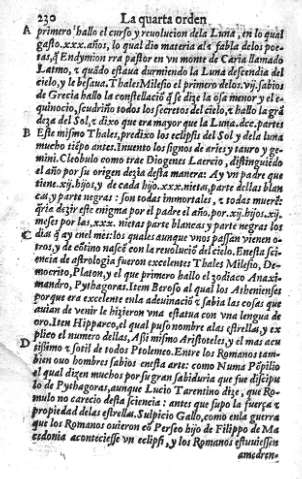 230 La quarta orden
A primero hallo el curso y reuolucion dela Luna, en lo qual
gasto.xxx.años, lo qual dio materia ala fabla delos poe-
tas, q̃ Endymion era pastor en vn monte de Caria llamado
Latmo, z quãdo estaua durmiendo la Luna descendia del
cielo, y le besaua. Thales Milesio el primero delos .vij. sabios
de Grecia hallo la constellació q̃ se dize la osa menor y el e-
quinocio, scudriño todos los secretos del cielo, z hallo la grã
deza del Sol, z dixo que era mayor que la Luna .dcc. partes
B Este mismo Thales, predixo los eclipsis del Sol y dela luna
mucho tiẽpo antes. Inuento los signos de aries y tauro y ge-
mini. Cleobulo como trae Diogenes Laercio, distinguiédo
el año por su origen dezia desta manera: Ay vn padre que
tiene .xij. hijos, y de cada hijo .xxx. nietas, parte dellas blan
cas, y parte negras: son todas immortales, z todas muerẽ:
q̃ria dezir este enigma por el padre el año, por .xij. hijos .xij.
meses por las .xxx. nietas parte blancas y parte negras los
C dias q̃ ay enel mes: los quales aunque vnos passan vienen o-
tros, y de cõtino nascẽ con la reuolució del cielo. En esta sci-
encia de astrologia fueron excelentes Thales Milesio, De-
mocrito, Platon, y el que primero hallo el zodiaco Anaxi-
mandro, Pythagoras. Item Beroso al qual los Athenienses
porque era excelente enla adeuinació z sabia las cosas que
auian de venir le hizieron vna estatua con vna lengua de
oro. Item Hipparco, el qual puso nombre alas estrellas, y ex
plico el numero dellas, Assi mismo Aristoteles, y el mas acu
D tissimo z sotil de todos Ptolomeo. Entre los Romanos tam-
bien ouo hombres sabios enesta arte: como Numa Põpilio
el qual dizen muchos por su gran sabiduria que fue discipu
lo de Pythagoras, aunque Lucio Tarentino dize, que Ro-
mulo no carecio desta sciencia: antes que supo la fuerça z
propiedad delas estrellas. Sulpicio Gallo, como enla guerra
que los Romanos ouieron cõ Perseo hijo de Filippo de Ma
cedonia aconteciesse vn eclipsi, y los Romanos estuuiessen
amedren-